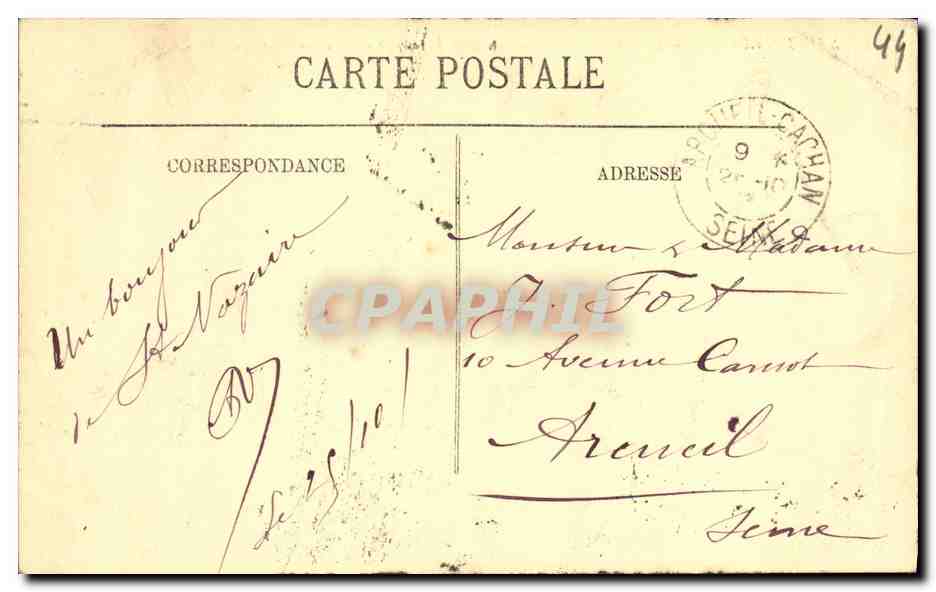 44
CARTE POSTALE
CORRESPONDANCE
ADRESSE
ARCUEIL-CACHAN
9
SEINE
Un bonjour
de St Nazaire
le 25/10/
Monsieur & Madame
J. Fort
10 Avenue Carnot
Arcueil
Seine
CPAPHIL